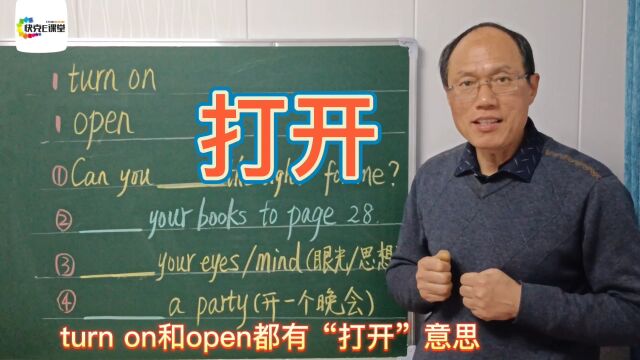 快克E课堂
turn on
open
打开
①Can you _____ light for me?
②_____ your books to page 28.
③_____ your eyes/mind(眼光/思想
④_____ a party(开一个晚会)
turn on和open都有“打开”意思